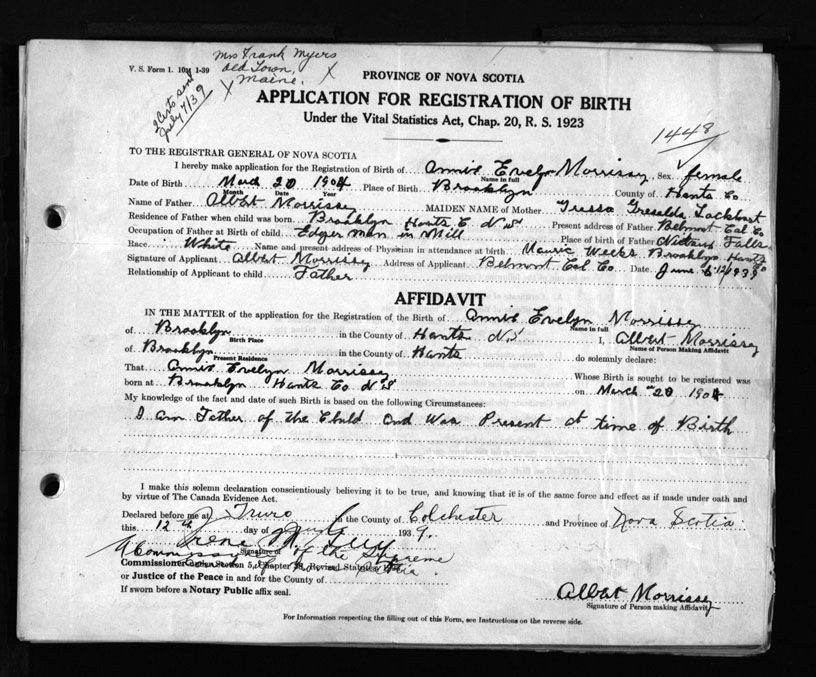 V. S. Form 1. 10M 1-39
Mrs Frank Myers
Old Town,
Maine.
2 Certs sent
July 7/39
PROVINCE OF NOVA SCOTIA
APPLICATION FOR REGISTRATION OF BIRTH
Under the Vital Statistics Act, Chap. 20, R. S. 1923
1448
TO THE REGISTRAR GENERAL OF NOVA SCOTIA
I hereby make application for the Registration of Birth of Annie Evelyn Morrissey Sex female
Name in full
Date of Birth March 20 1904 Place of Birth Brooklyn County of Hants Co
Month Date Year
Name of Father Albert Morrissey MAIDEN NAME of Mother Gresalda Lockhart
Residence of Father when child was born Brooklyn Hants C N S Present address of Father Belmont Col Co
Occupation of Father at Birth of child Edger man in Mill Place of birth of Father Nictaux Falls
Race White Name and present address of Physician in attendance at birth Weeks Brooklyn Hants Co
Signature of Applicant Albert Morrissey Address of Applicant Belmont Col. Co Date June
Relationship of Applicant to child Father
AFFIDAVIT
IN THE MATTER of the application for the Registration of the Birth of Annie Evelyn Morrissey
Name in full
of Brooklyn in the County of Hants N.S I, Albert Morrissey
Birth Place Name of Person Making Affidavit
of Brooklyn in the County of Hants do solemnly declare:
Present Residence
That Annie Evelyn Morrissey Whose Birth is sought to be registered was
born at Brooklyn Hants Co N S on March 20 1904
My knowledge of the fact and date of such Birth is based on the following Circumstances:
I am Father of the Child and Was Present at time of Birth
I make this solemn declaration conscientiously believing it to be true, and knowing that it is of the same force and effect as if made under oath and
by virtue of The Canada Evidence Act.
Declared before me at Truro in the County of Colchester and Province of Nova Scotia
this 12th day of 1939.
Signature of
A Commissioner of the Supreme
Commissioner Section 5, Chapter Revised Statutes
or Justice of the Peace in and for the County of
If sworn before a Notary Public affix seal.
Albert Morrissey
Signature of Person making Affidavit
For Information respecting the filling out of this Form, see Instructions on the reverse side.